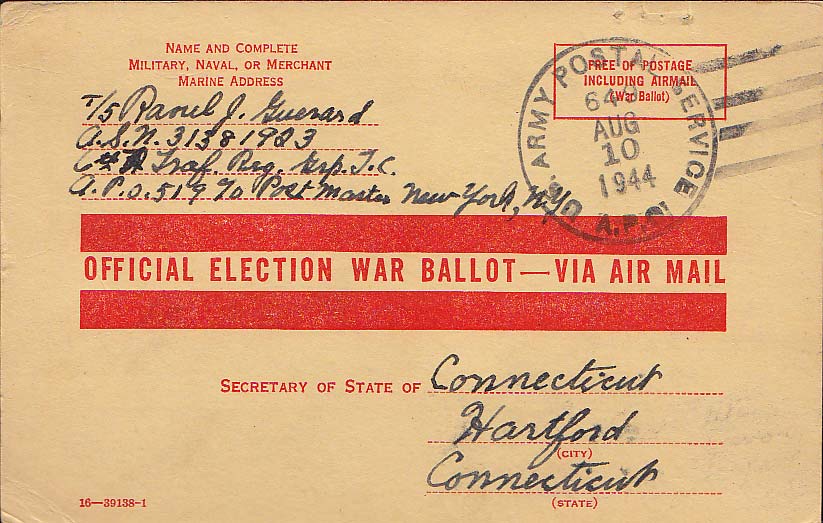 NAME AND COMPLETE
MILITARY, NAVAL, OR MERCHANT
MARINE ADDRESS
T/5 Raoul J. Guerard
A.S.N. 31381923
Traf. Reg. Grp. T.C.
A.P.O. 519 % Post Master New York, NY
FREE OF POSTAGE
INCLUDING AIRMAIL
(War Ballot)
U.S. ARMY POSTAL SERVICE
AUG
10
1944
A.P.O.
OFFICIAL ELECTION WAR BALLOT—VIA AIR MAIL
SECRETARY OF STATE OF Connecticut
Hartford
(CITY)
Connecticut
(STATE)
16—39138-1